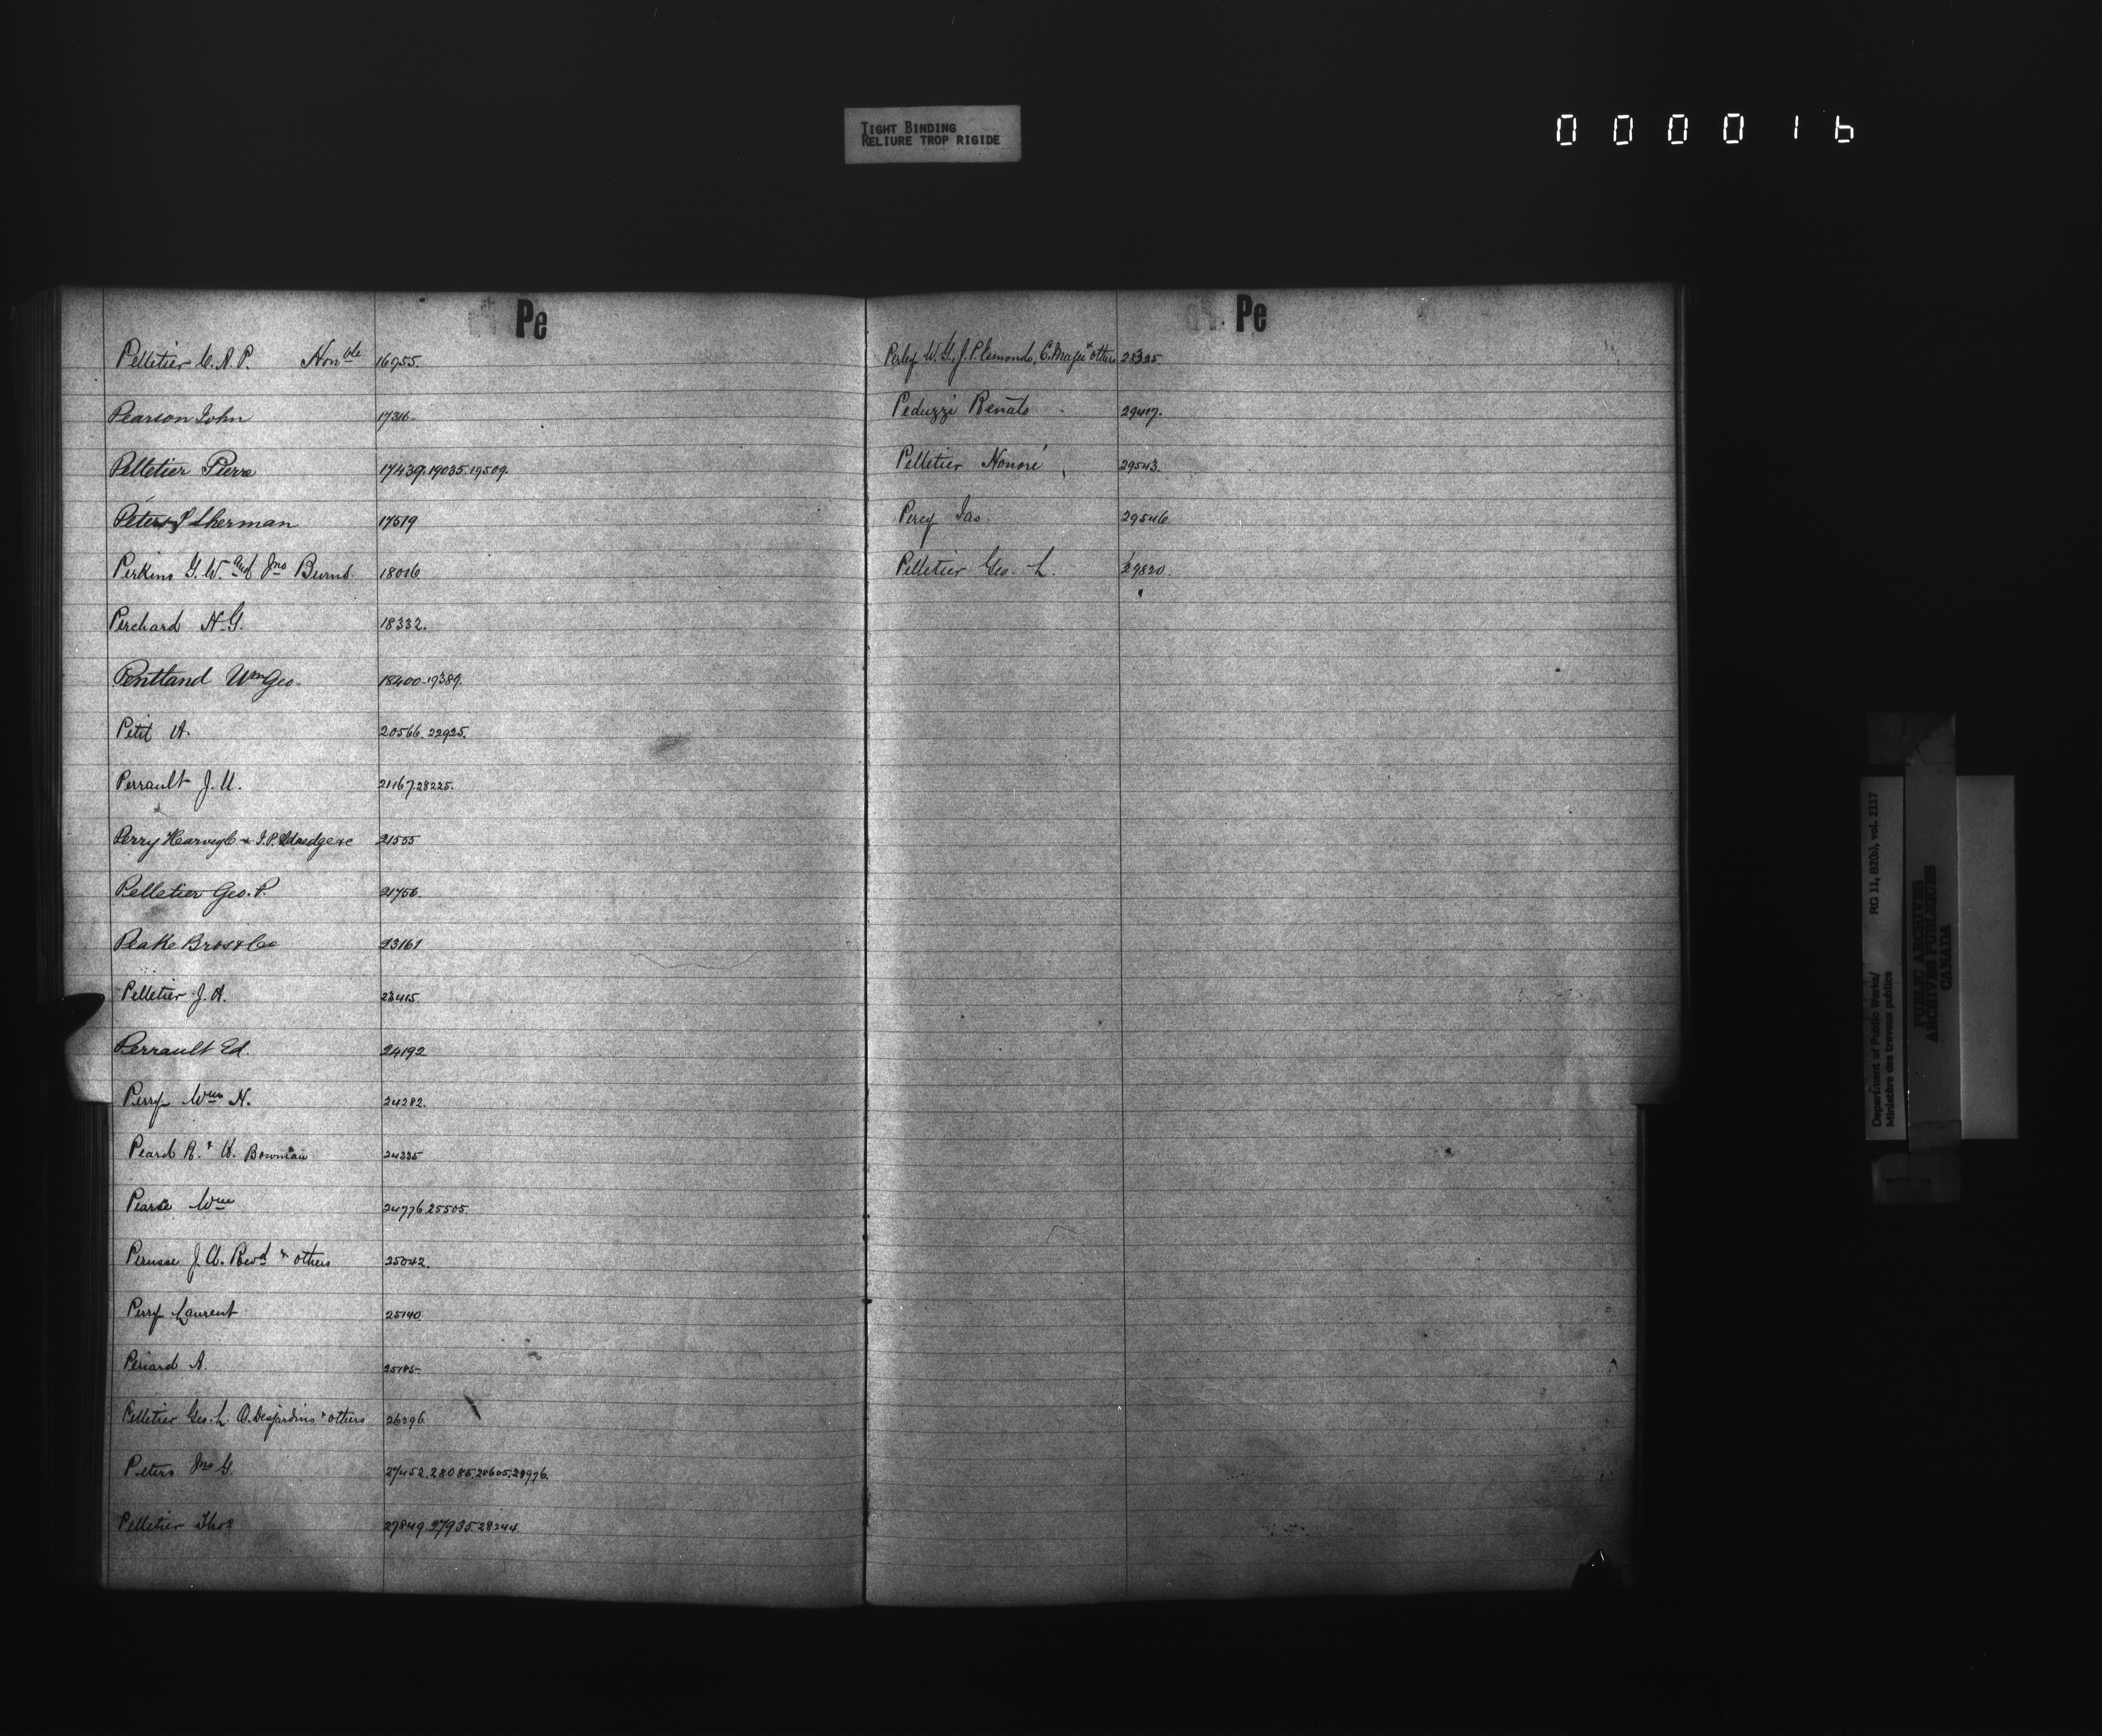 TIGHT BINDING
RELIURE TROP RIGIDE
0 0 0 0 1 6
Pe
Pelletier C. A. P. Honble 16955.
Pearson John 17316.
Pelletier Pierre 17439. 19035. 19509.
Peters Sherman 17519
Perkins G. W. and Jno Burnt. 18016
Perchard N. G. 18332.
Pentland Wm Geo. 18400-19389.
Petit A. 20566. 22925.
Perrault J. U. 21167. 28225.
Perry & J. P. 21555
Pelletier Geo. P. 21756.
Peake Bros & Co 23161
Pelletier J. A. 23415.
Perrault Ed. 24192
Perry Wm N. 24282.
Peard R. & W. Bowman 24335
Pearse Wm 24776 25505.
Perusse J. A. Revd & others 25042.
Perry Laurent 25140
Periard A. 25185-
Pelletier Geo. L. O. Desjardins & others 26296.
Peters Jno G. 27452. 28085. 28605. 28996.
Pelletier Thos 27849. 27935. 28244.
Pe
Perley W. G., J. P. Esmonde, C. Magee & others 28325.
Peduzzi Renato 29417.
Pelletier Honoré 29543.
Percy Jas. 29546
Pelletier Geo. L. 29820.
Department of Public Works/ RG 11, B2(b), vol. 2117
Ministère des travaux publics
PUBLIC ARCHIVES
ARCHIVES PUBLIQUES
CANADA